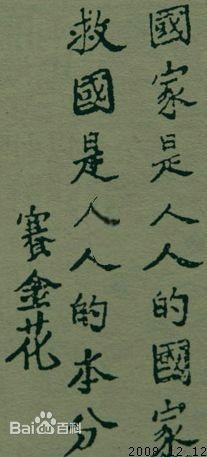 國家是人人的國家
救國是人人的本分
賽金花
Bai百科
2009.12.12